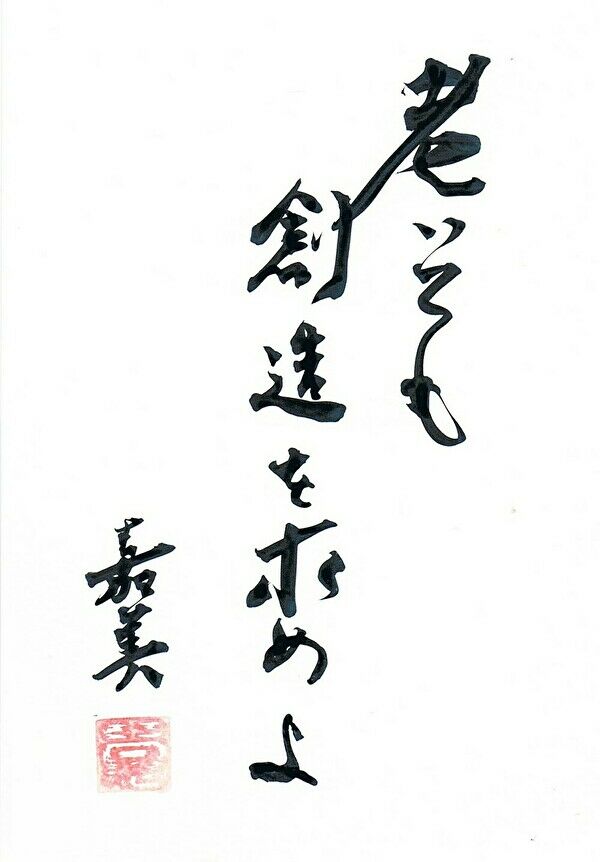 老いても
創造を求めよ
嘉美